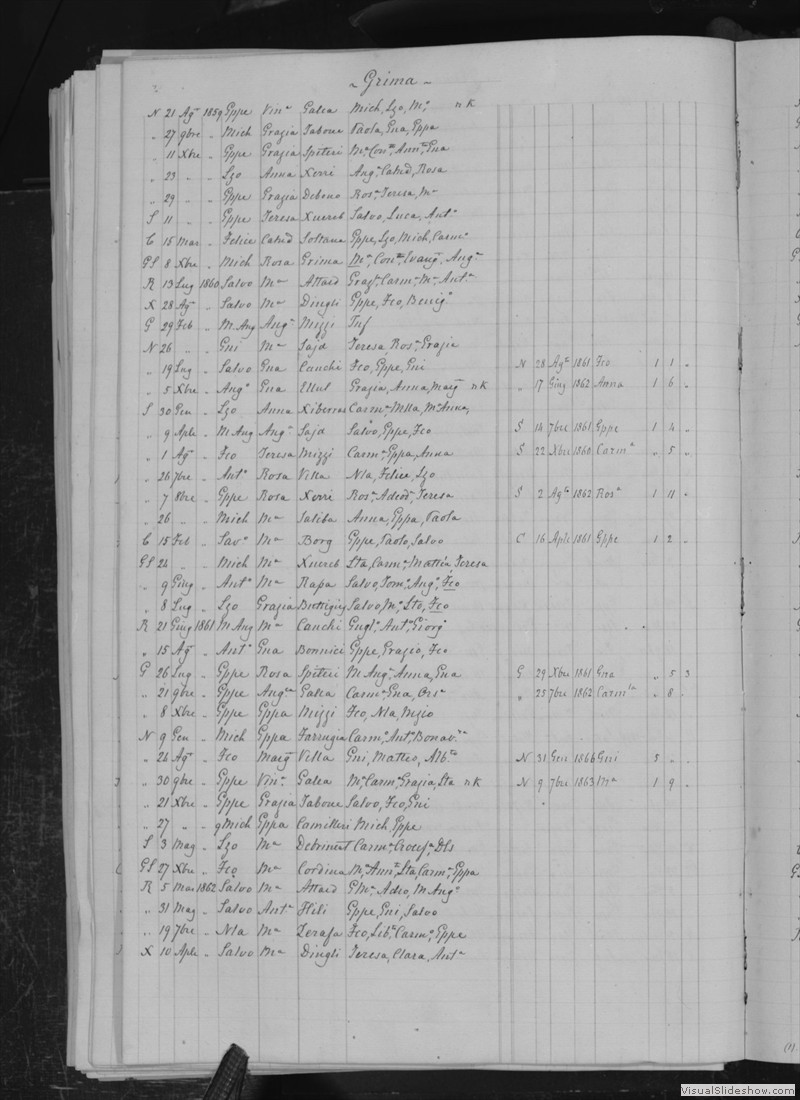 ~ Grima ~
N 21 Agᵗᵒ 1859 Gppe Vinᵃ Galea Mich, Lzo, Mᵃ nK
" 27 9bre " Mich Grazia Tabone Paola, Gna, Gppa
" 11 Xbre " Gppe Grazia Spiteri Mᵃ Conᵗᵃ, Annᵗᵃ, Gna
" 23 " " Lzo Anna Xerri Angᵃ, Catnd, Rosa
" 29 " " Gppe Grazia Debono Rosᵃ, Teresa, Mᵃ
S 11 " " Gppe Teresa Xuereb Salvo, Luca, Antᵒ
C 15 Mar " Felice Catnd Soltana Gppe, Lzo, Mich, Carmᵒ
GS 8 Xbre " Mich Rosa Grima Mᵃ, Conᵗᵃ, Evangᵃ, Angᵃ
R 13 Lug 1860 Salvo Mᵃ Attard Grazᵃ, Carmᵃ, Mᵃ, Antᵃ
X 28 Agᵒ " Salvo Mᵃ Dingli Gppe, Fco, Benigᵒ
G 29 Feb " M. Ang Angᵃ Mizzi Inf
N 26 " " Gni Mᵃ Sajd Teresa, Rosᵃ, Grazia
" 19 Lug " Salvo Gna Cauchi Fco, Gppe, Gni N 28 Agᵗᵒ 1861 Fco 1 1 "
" 5 Xbre " Angᵒ Gna Ellul Grazia, Anna, Margᵃ nK " 17 Giug 1862 Anna 1 6 "
S 30 Gen " Lzo Anna Xiberras Carmᵃ Mlla, Mᵃ Anna,
" 9 Aple " M Ang Angᵃ Sajd Salvo, Gppe, Fco S 14 7bre 1861 Gppe 1 4 "
" 1 Agᵒ " Fco Teresa Mizzi Carmᵃ, Gppa, Anna S 22 Xbre 1860 Carmᵃ " 5 "
" 26 7bre " Antᵒ Rosa Vella Nla, Felice, Lzo
" 7 8bre " Gppe Rosa Xerri Rosᵃ, Adeodᵃ, Teresa S 2 Agᵗᵒ 1862 Rosᵃ 1 11 "
" 26 " " Mich Mᵃ Saliba Anna, Gppa, Paola
C 15 Feb " Savᵒ Mᵃ Borg Gppe, Paolo, Salvo C 16 Aple 1861 Gppe 1 2 "
GS 24 " " Mich Mᵃ Xuereb Lta, Carmᵃ, Mattia, Teresa
" 9 Giug " Antᵒ Mᵃ Rapa Salvo, Tomᵒ, Angᵒ, Fco
" 8 Lug " Lzo Grazia Buttigieg Salvo, Mᵒ, Lto, Fco
R 21 Giug 1861 M Ang Mᵃ Cauchi Gugl°, Antᵒ, Giorgᵒ
" 15 Agᵒ " Antᵒ Gna Bonnici Gppe, Grazio, Fco
G 26 Lug " Gppe Rosa Spiteri M Angᵃ, Anna, Gna G 29 Xbre 1861 Gna " 5 3
" 21 9bre " Gppe Angᵉˡᵃ Galea Carmᵃ, Gna, Orsᵃ " 25 7bre 1862 Carmˡᵃ " 8 "
" 8 Xbre " Gppe Gppa Mizzi Fco, Nla, Nzio
N 9 Gen " Mich Gppa Farrugia Carmᵒ, Antᵒ, Bonavʳᵃ
" 24 Agᵒ " Fco Margᵃ Vella Gni, Matteo, Albᵗᵒ N 31 Gen 1866 Gni 5 " "
" 30 9bre " Gppe Vinᵃ Galea Mᵃ, Carmᵃ, Grazia, Lta nK N 9 7bre 1863 Mᵃ 1 9 "
" 21 Xbre " Gppe Grazia Tabone Salvo, Fco, Gni
" 27 " " Mich Gppa Camilleri Mich, Gppe
S 3 Mag " Lzo Mᵃ Debrincat Carmᵃ, Crocifᵃ, Dls
GS 27 Xbre " Fco Mᵃ Cordina Mᵃ, Annᵗᵃ, Lta, Carmᵃ, Gppa
R 5 Mar 1862 Salvo Mᵃ Attard GMᵃ, Adeo, M Angᵒ
" 31 Mag " Salvo Antᵃ Hili Gppe, Gni, Salvo
" 19 7bre " Nla Mᵃ Zerafa Fco, Libᵒ, Carmᵒ, Gppe
X 10 Aple " Salvo Mᵃ Dingli Teresa, Clara, Antᵃ
VisualSlideshow.com